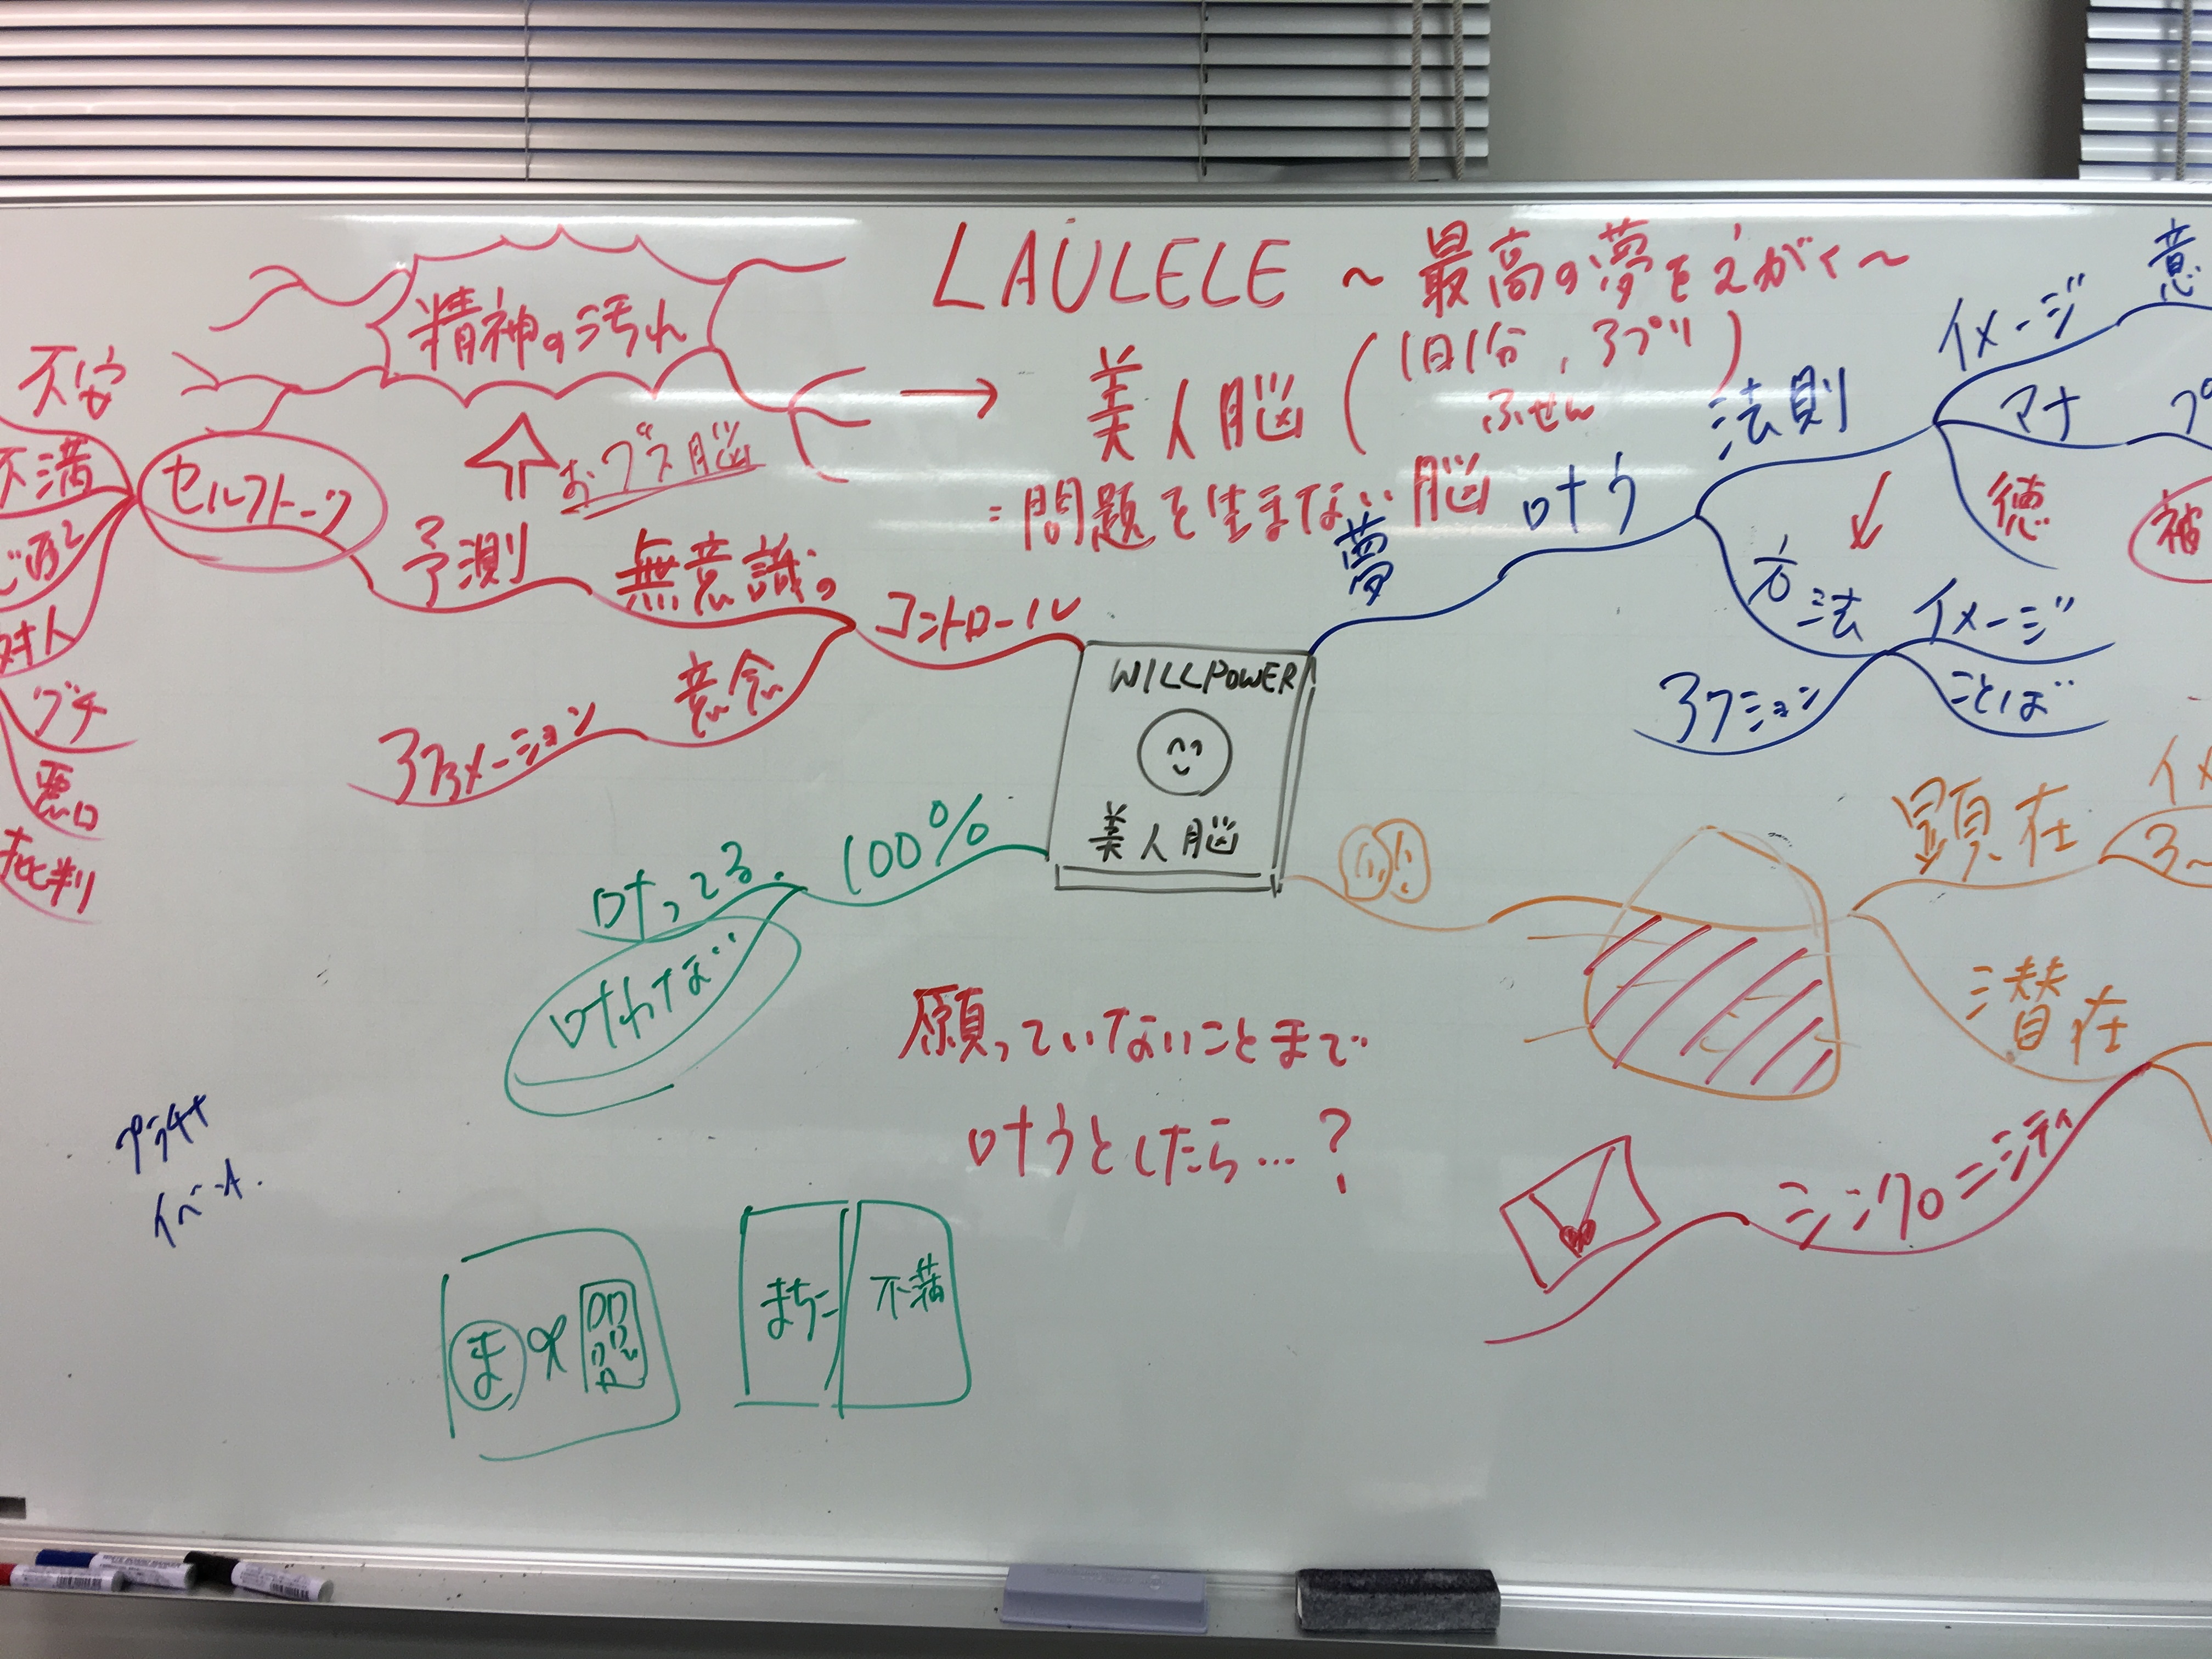 LAULELE ~ 最高の夢をえがく~
→ 美人脳 (1日1分, アプリ
ふせん)
= 問題を生まない脳
精神の汚れ
おブス脳
不安
不満
心配
対人
グチ
悪口
批判
セルフトーク
予測
無意識の
コントロール
意念
アファメーション
WILLPOWER
美人脳
夢
叶う
法則
イメージ
意
マナ
プ
徳
被
方法
イメージ
ことば
アクション
100%
叶ってる.
叶わなば
顕在
イメ
潜在
シンクロニシティ
願っていないことまで
叶うとしたら…?
プラチナ
イベント.
ま
まちこ
不満